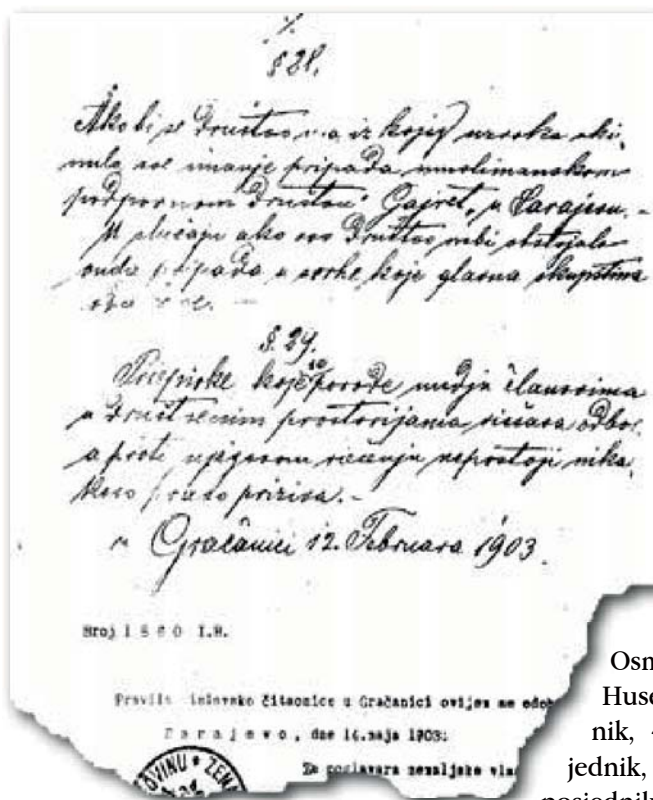 § 28.
Ako bi se društvo ma iz kojeg uzroka uki-
nulo sve imanje pripada muslimanskom
podpornom društvu "Gajret" u Sarajevu. -
U slučaju ako ovo društvo nebi obstojalo
onda pripada u svrhe koje glavna skupština
§. 29.
Prepirke koje se porode medju članovima
u društvenim prostorijama rješava odbor,
a proti njegovom rješenju nepostoji nika-
kovo pravo priziva. -
u Gračanici 12. Februara 1903.
Broj I.B.
Pravila islamske čitaonice u Gračanici ovijem se odob
Sarajevo, dne 14.maja 1903:
Za poglavara zemaljske vla
OVINU * ZEMA
Osm
Huse
nik,
jednik,
posjednik